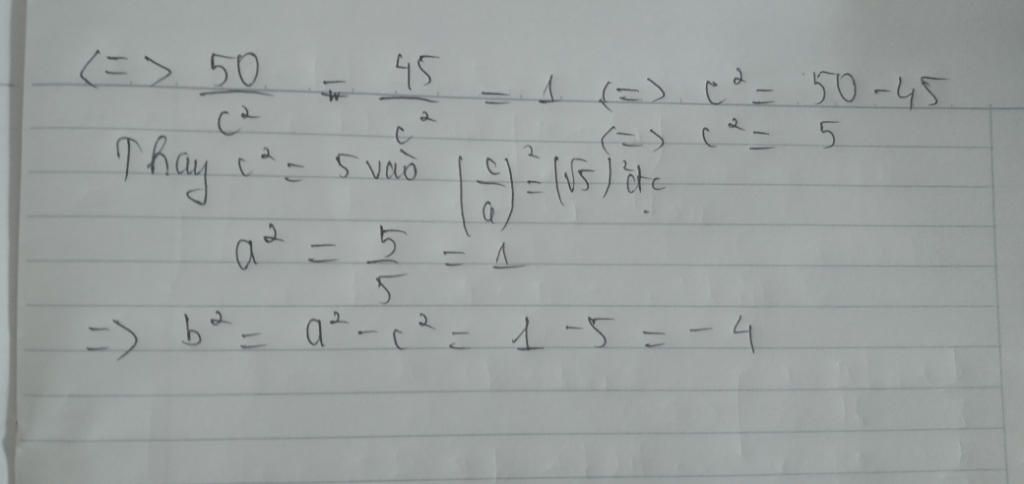 <=> 50/c² = 45/c² = 1 <=> c² = 50 - 45
<=> c² = 5
Thay c² = 5 vào (c/a)² = (√5)² đc
a² = 5/5 = 1
=> b² = a² - c² = 1 - 5 = - 4